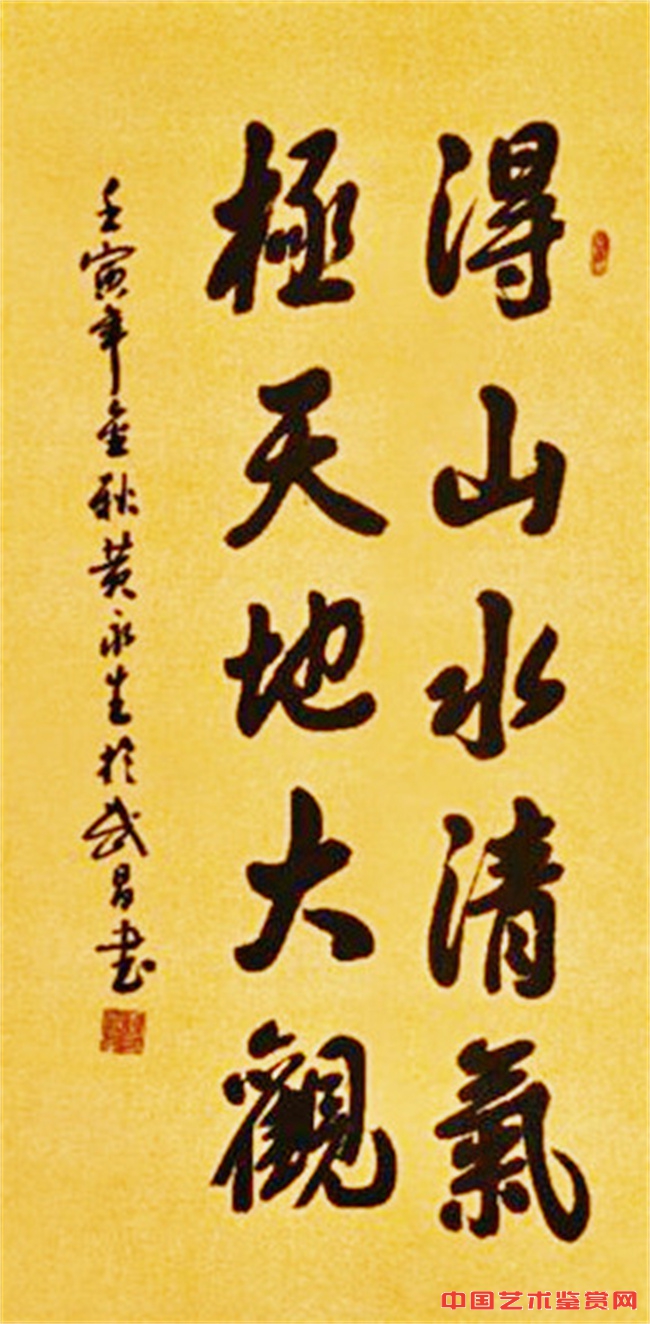 得山水清氣
極天地大觀
壬寅年金秋黄永生於武昌書
中国艺术鉴赏网